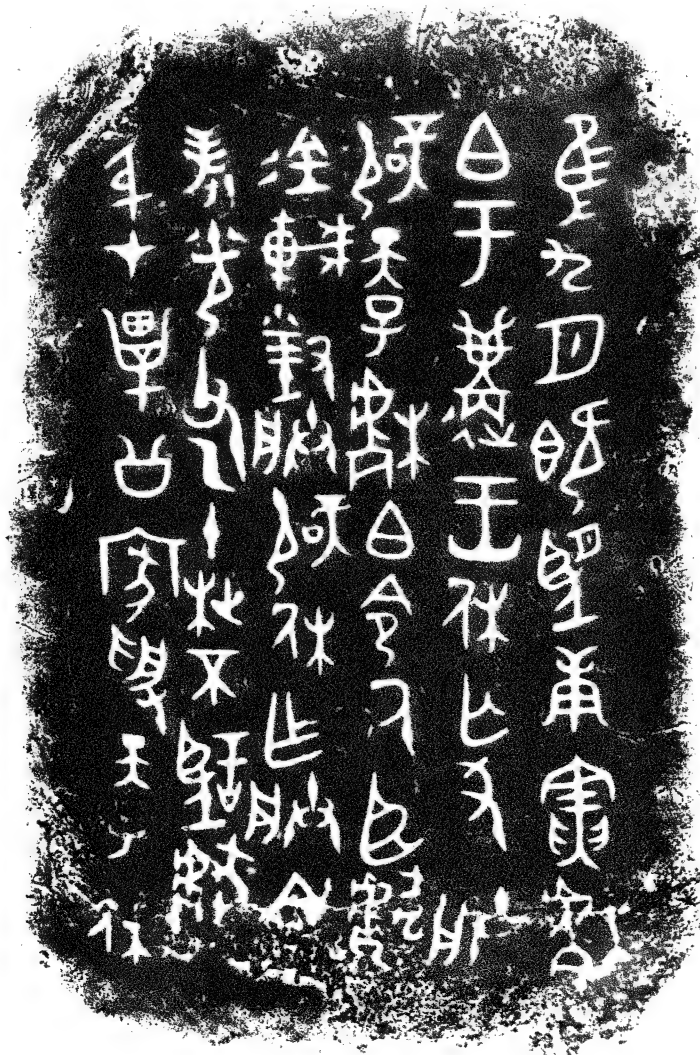 隹九月既朢庚寅楷
白于遘王休亡尤朕
辟天子楷白令氒臣獻
金車對朕辟休乍朕文
考光父乙十枻不𧭈獻
身才畢公家受天子休